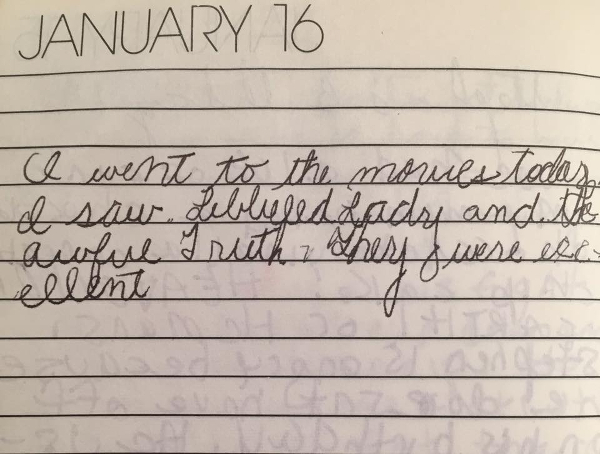 JANUARY 16
I went to the movies today.
I saw. Libleled Lady and the
awful Truth. They were exc-
ellent